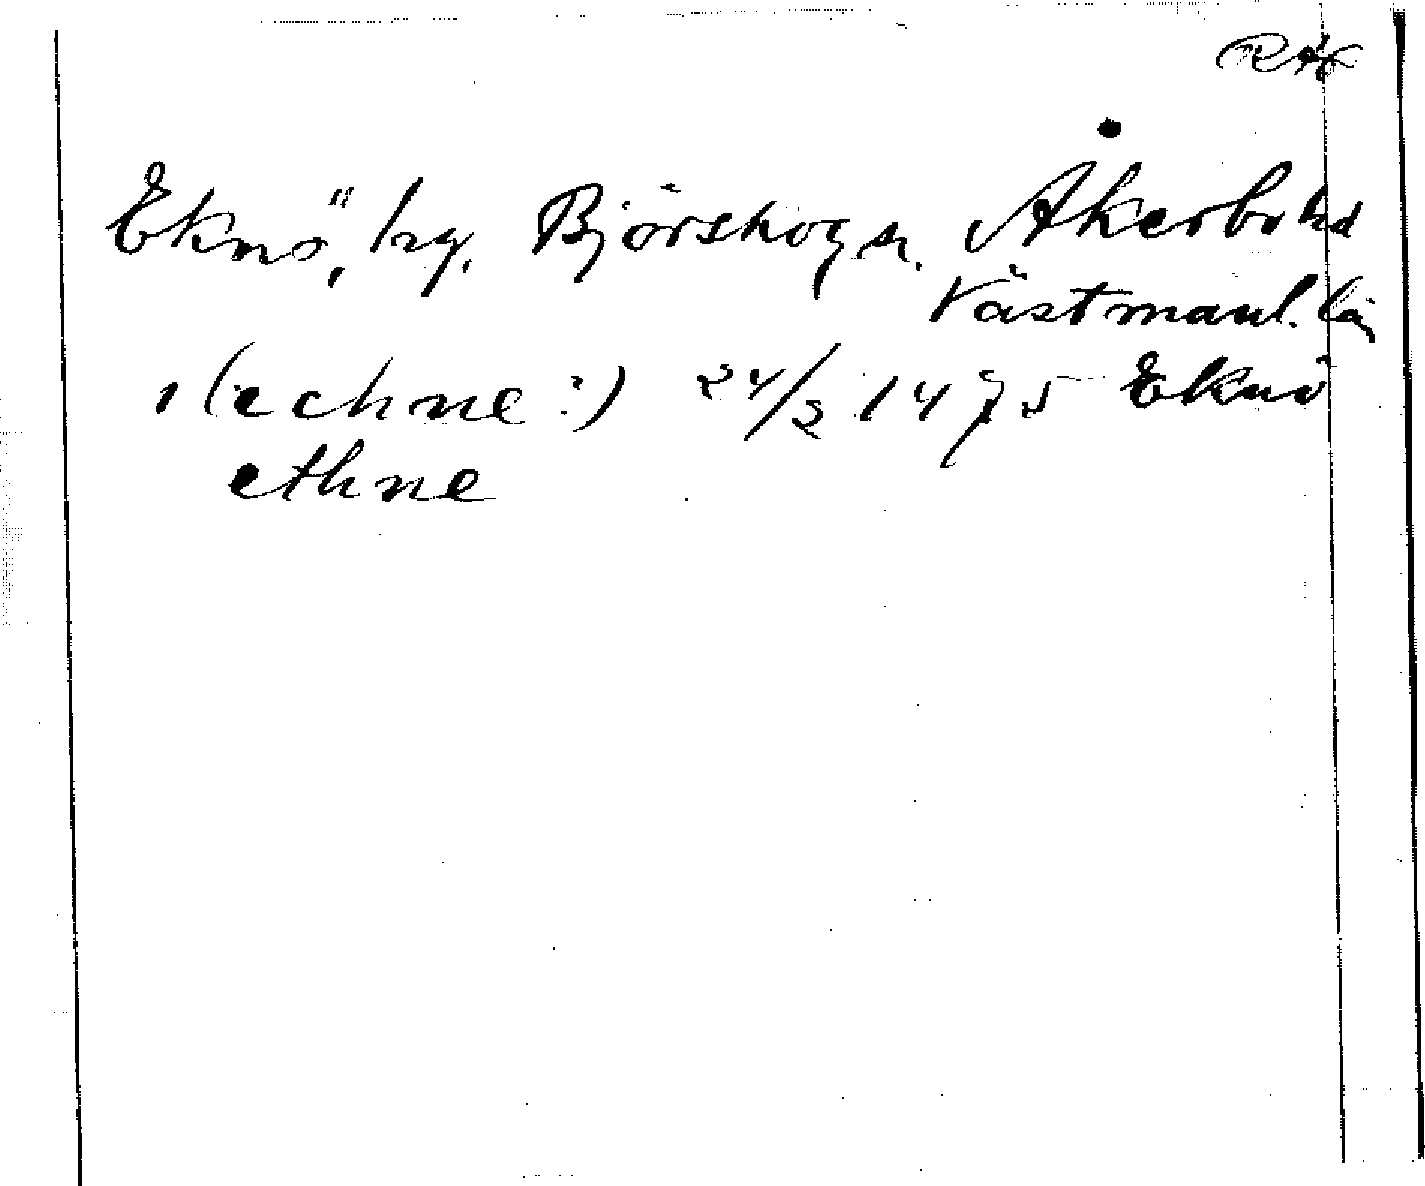 Eknö, by, Björskog sn. Åkerbo hd
Västmanl. län
1 (echne ?) 24/2 1475 Eknö
ethne